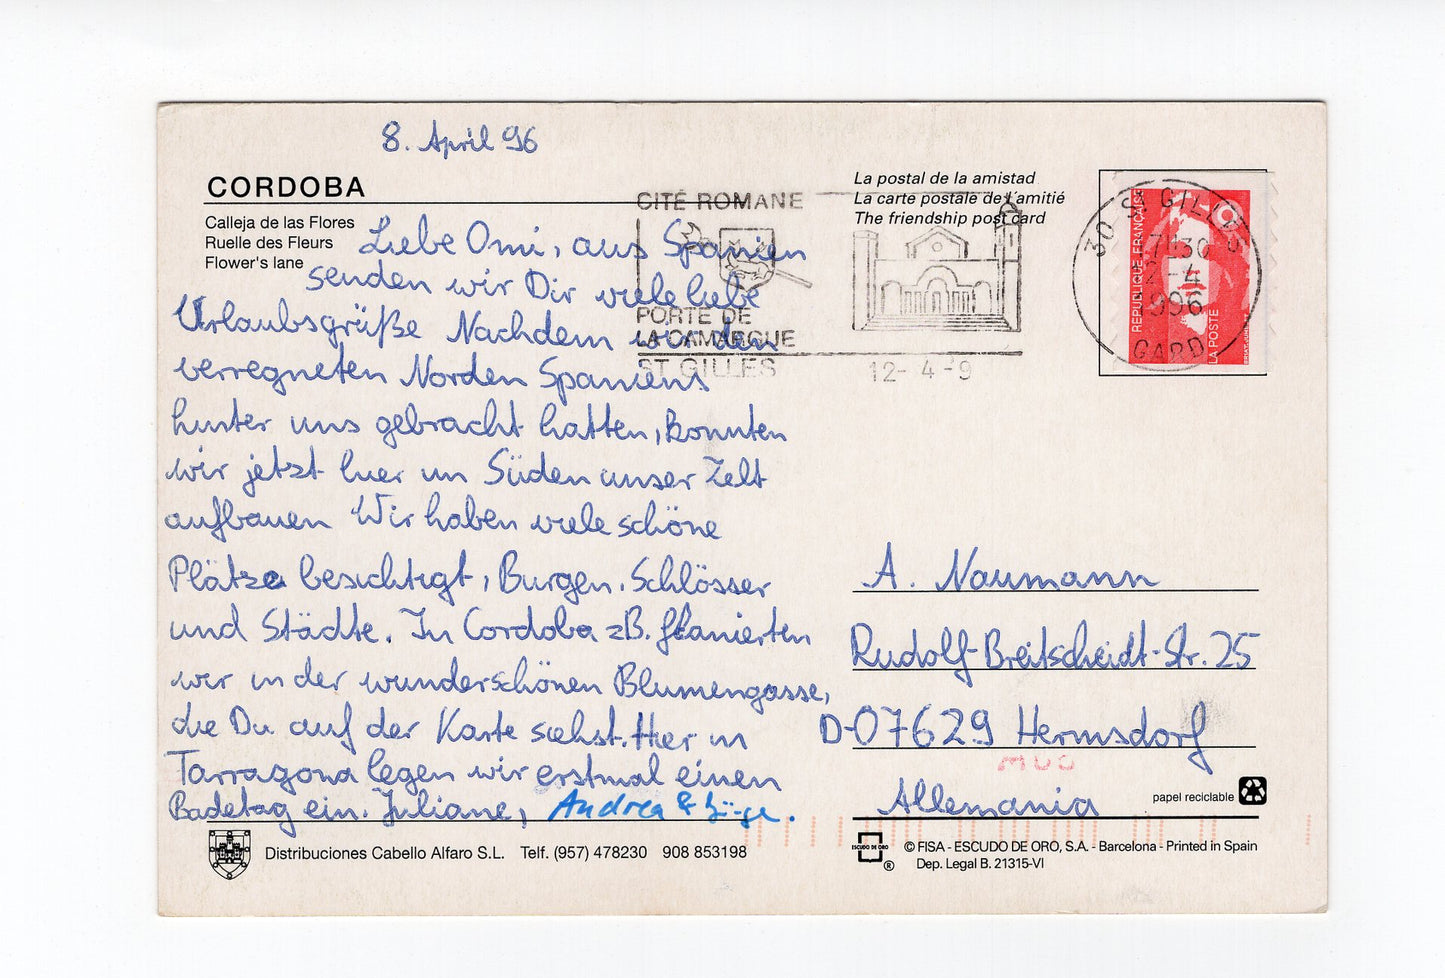 8. April 96
CORDOBA
Calleja de las Flores
Ruelle des Fleurs
Flower's lane
La postal de la amistad
La carte postale de l'amitié
The friendship post card
CITÉ ROMANE
PORTE DE
LA CAMARGUE
ST GILLES
12- 4 -9
30 ST GILLES
7H30
12-4
1996
GARD
REPUBLIQUE FRANÇAISE
LA POSTE
Liebe Omi, aus Spanien
senden wir Dir viele liebe
Urlaubsgrüße Nachdem wir den
verregneten Norden Spaniens
hinter uns gebracht hatten, konnten
wir jetzt hier im Süden unser Zelt
aufbauen Wir haben viele schöne
Plätze besichtigt, Burgen, Schlösser
und Städte. In Cordoba zB. flanierten
wir in der wunderschönen Blumengasse,
die Du auf der Karte siehst. Hier in
Tarragona legen wir erstmal einen
Badetag ein. Juliane, Andrea &
A. Naumann
Rudolf-Breitscheidt-Str. 25
D-07629 Hermsdorf
Allemania
papel reciclable
Distribuciones Cabello Alfaro S.L. Telf. (957) 478230 908 853198
ESCUDO DE ORO
®
© FISA - ESCUDO DE ORO, S.A. - Barcelona - Printed in Spain
Dep. Legal B. 21315-VI